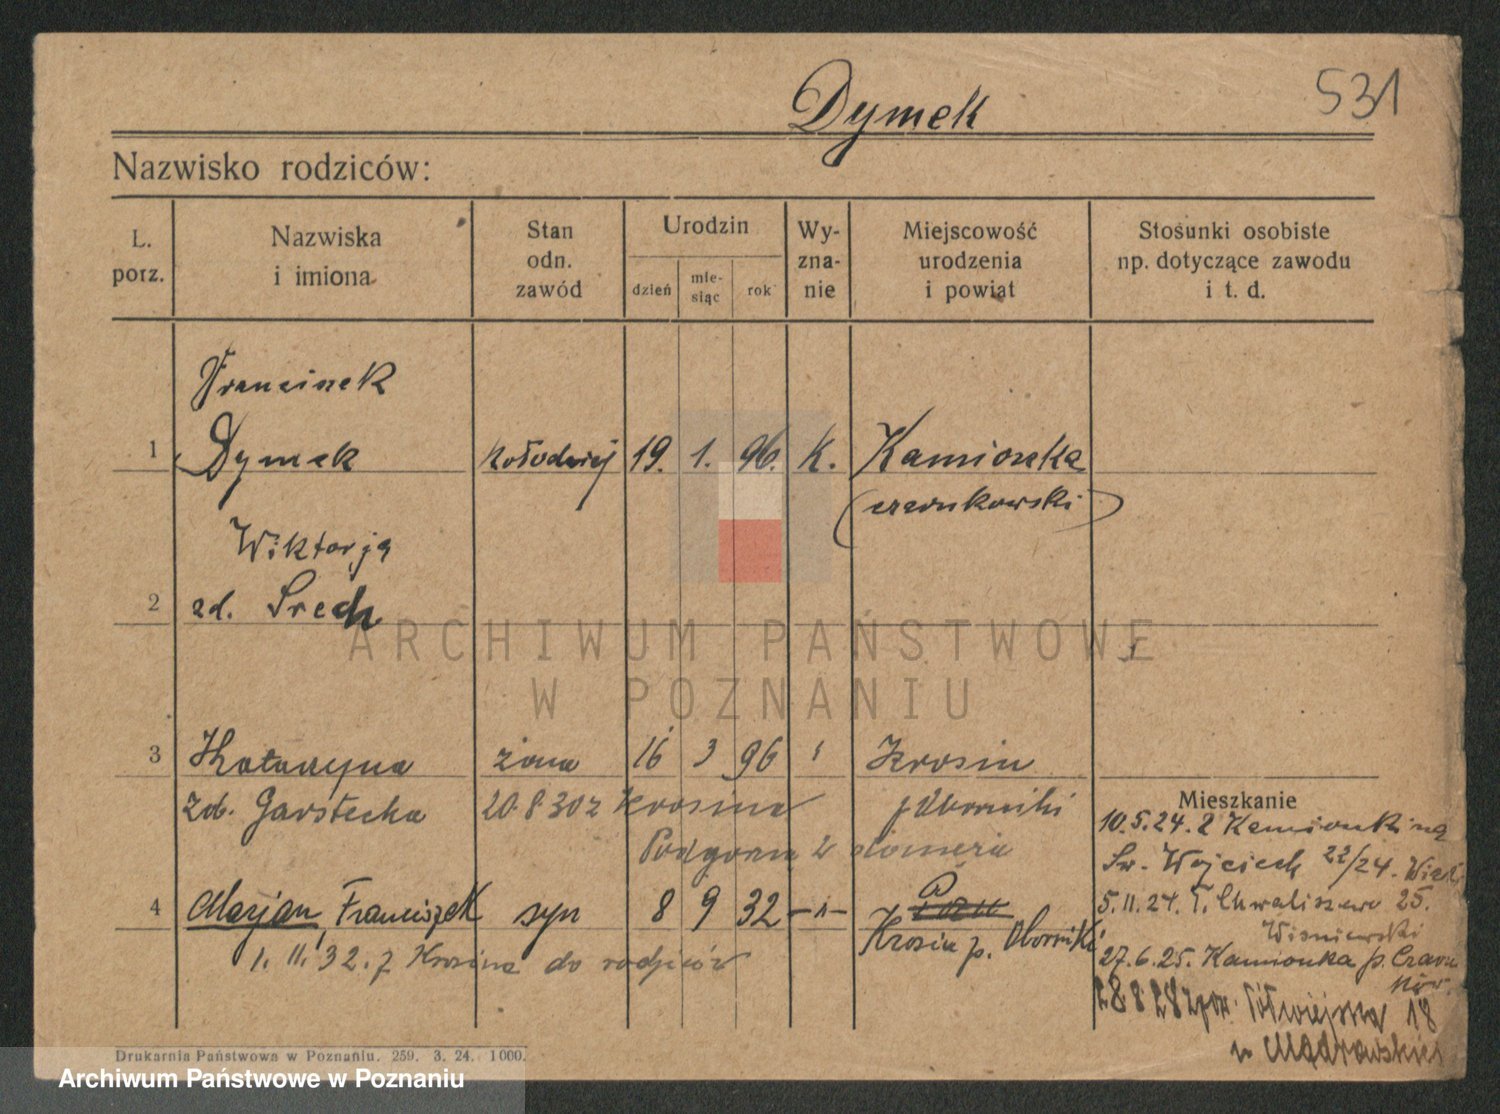 531
Dymek
Nazwisko rodziców:
L. porz.
Nazwiska i imiona
Stan odn. zawód
Urodzin
dzień
mie-siąc
rok
Wy-zna-nie
Miejscowość urodzenia i powiat
Stosunki osobiste np. dotyczące zawodu i t. d.
Franciszek
1 Dymek kołodziej 19. 1. 96. K. Kamionka
(czarnkowski)
Wiktorja
2 zd. Srech
ARCHIWUM PAŃSTWOWE
W POZNANIU
3 Katarzyna żona 16 3 96 Krosin
zd. Garstecka 20.8.30 z Krosina p Oborniki
Mieszkanie
10.5.24. z Kamionki na
Podgórna
Św. Wojciech 22/24.
4 Marjan, Franciszek syn 8 9 32 -"- Pozn
5.11.24. Chwaliszewo 25.
Krosin p. Oborniki
Wiśniewski
1. 11. 32. z Krosina do rodziców
27.6.25. Kamionka p. Czarn
ków.
28.8.28 z poz. Półwiejska 18
u Mądrawskiej
Drukarnia Państwowa w Poznaniu. 259. 3. 24. 1000.
Archiwum Państwowe w Poznaniu